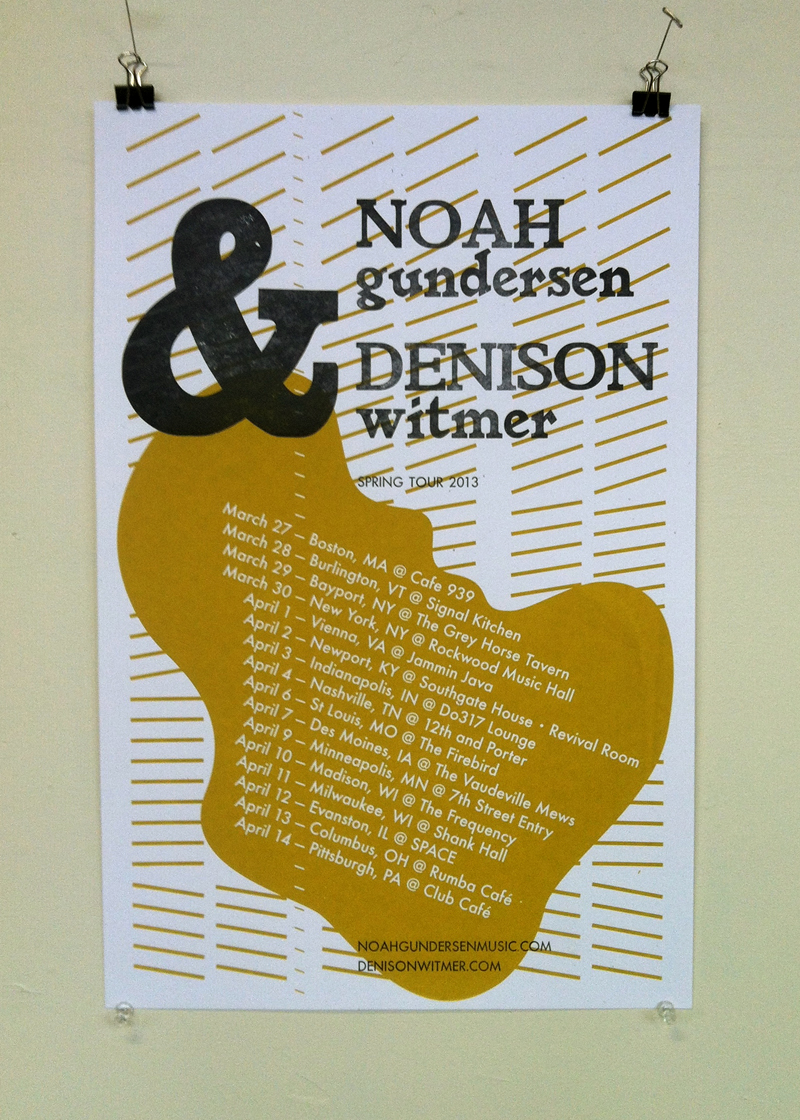 &
NOAH
gundersen
DENISON
witmer
SPRING TOUR 2013
March 27 – Boston, MA @ Cafe 939
March 28 – Burlington, VT @ Signal Kitchen
March 29 – Bayport, NY @ The Grey Horse Tavern
March 30 – New York, NY @ Rockwood Music Hall
April 1 – Vienna, VA @ Jammin Java
April 2 – Newport, KY @ Southgate House • Revival Room
April 3 – Indianapolis, IN @ Do317 Lounge
April 4 – Nashville, TN @ 12th and Porter
April 6 – St Louis, MO @ The Firebird
April 7 – Des Moines, IA @ The Vaudeville Mews
April 9 – Minneapolis, MN @ 7th Street Entry
April 10 – Madison, WI @ The Frequency
April 11 – Milwaukee, WI @ Shank Hall
April 12 – Evanston, IL @ SPACE
April 13 – Columbus, OH @ Rumba Café
April 14 – Pittsburgh, PA @ Club Café
NOAHGUNDERSENMUSIC.COM
DENISONWITMER.COM